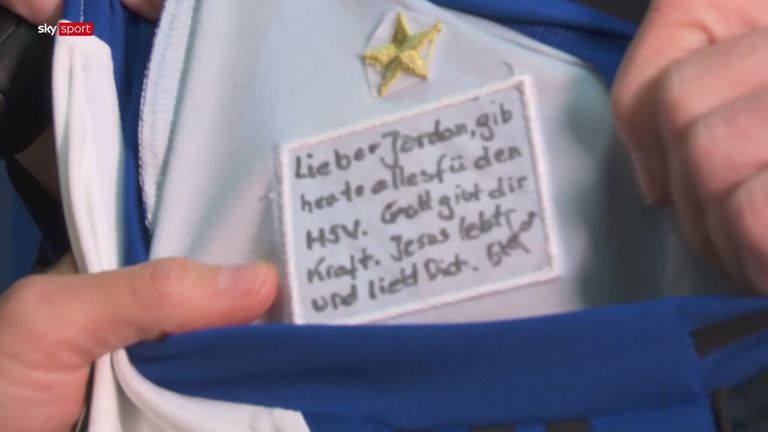 sky sport
Lieber Jordan, gib
heute alles fü den
HSV. Gott gibt dir
Kraft. Jesus lebt
und liebt Dich.